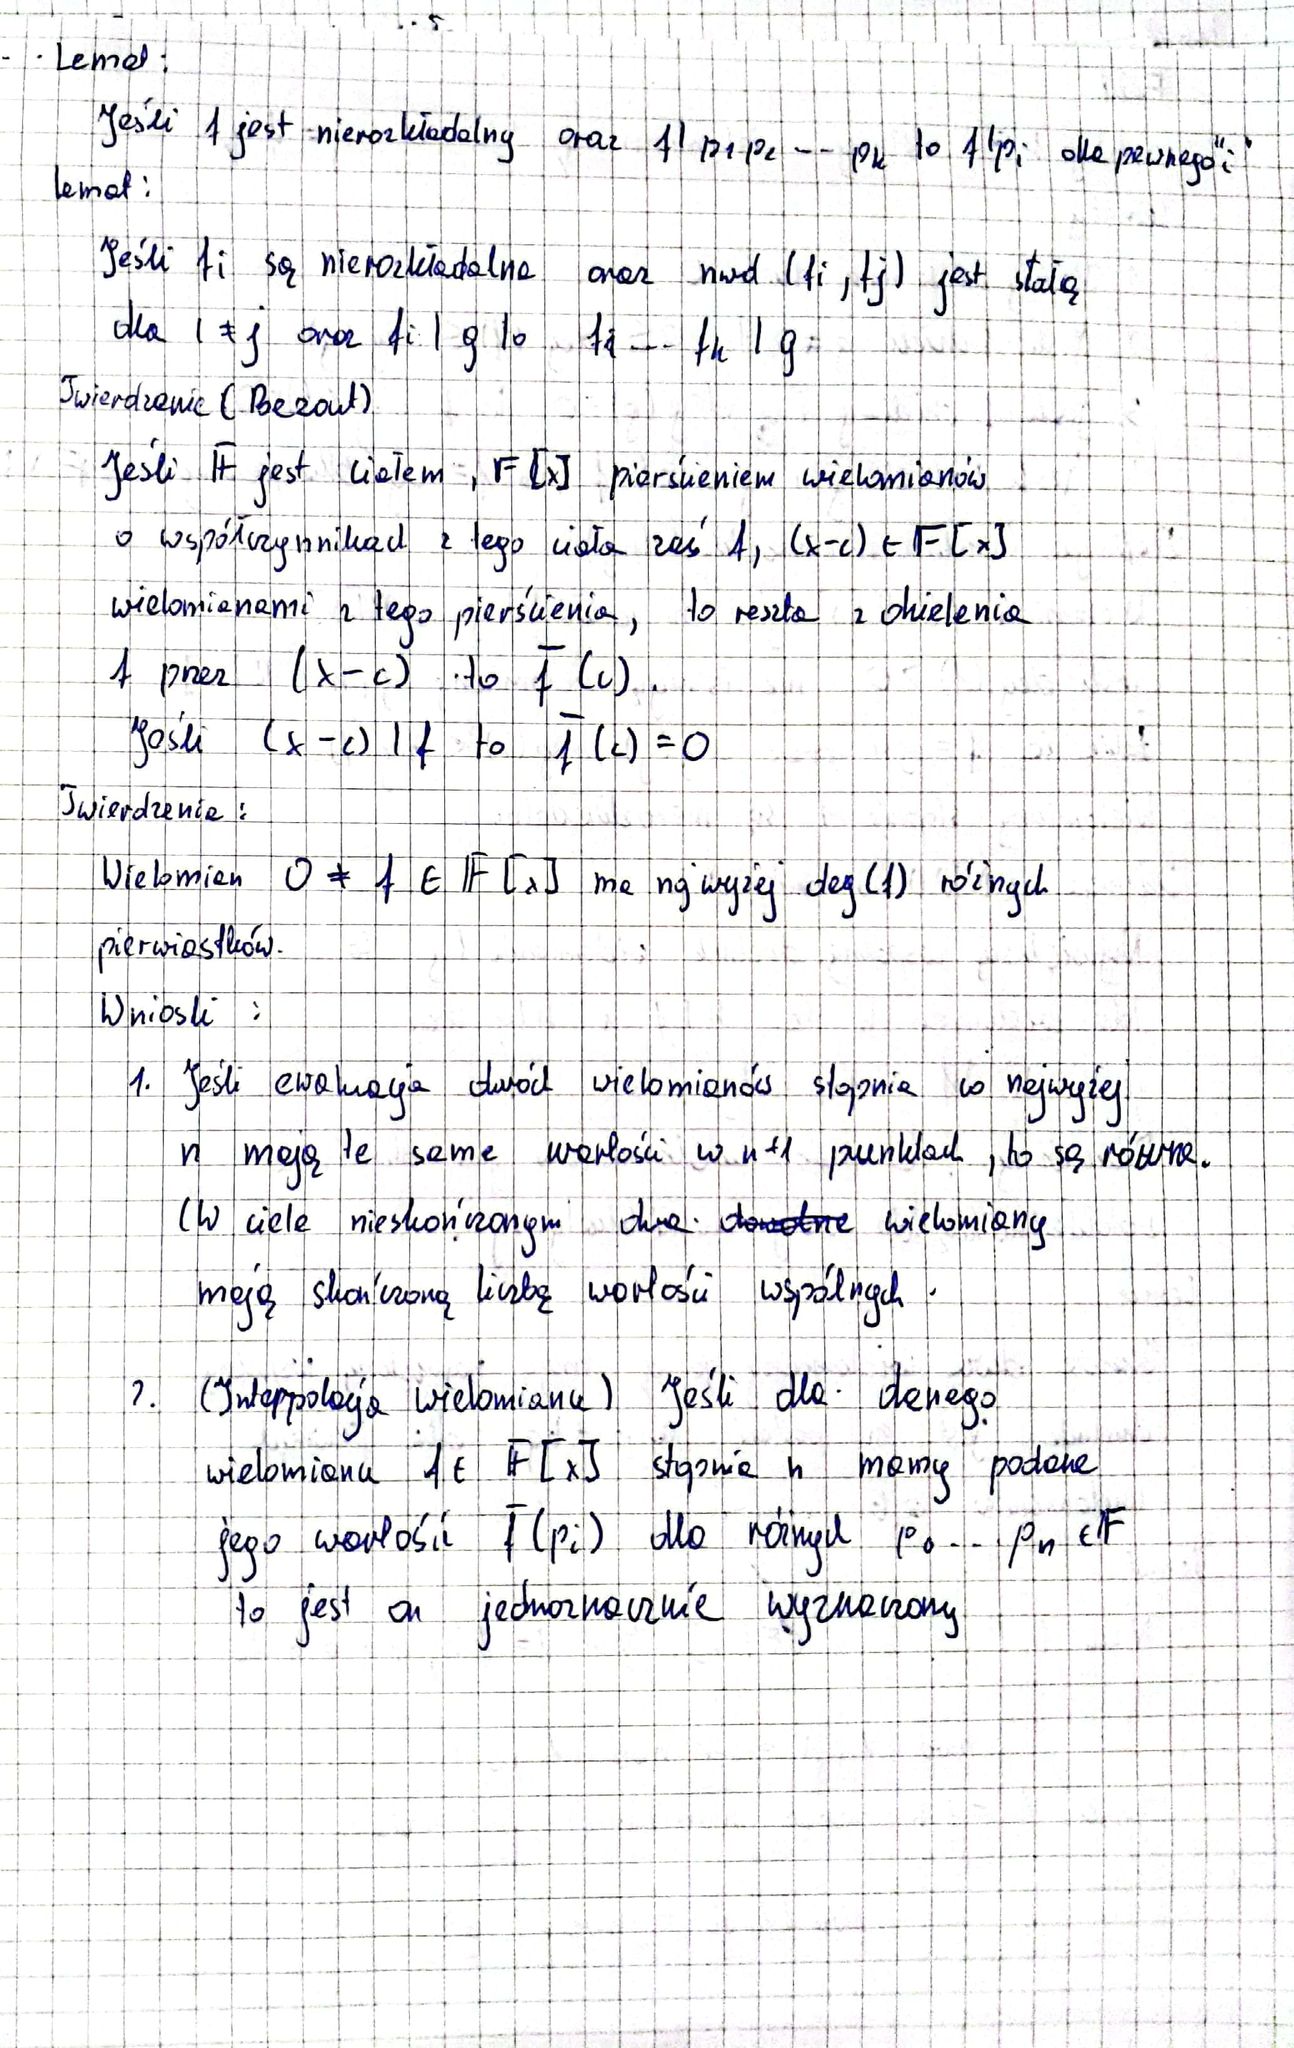 Lemat:
Jeśli f jest nierozkładalny oraz f | p₁p₂ ... pₖ to f | pᵢ dla pewnego "i"
Lemat:
Jeśli fᵢ są nierozkładalne oraz nwd (fᵢ, fⱼ) jest stałą
dla i ≠ j oraz fᵢ | g to f₁ ... fₖ | g
Twierdzenie (Bezout)
Jeśli 𝔽 jest ciałem, 𝔽[x] pierścieniem wielomianów
o współczynnikach z tego ciała zaś f, (x-c) ∈ 𝔽[x]
wielomianami z tego pierścienia, to reszta z dzielenia
f przez (x-c) to f̄(c).
Jeśli (x-c) | f to f̄(c) = 0
Twierdzenie:
Wielomian 0 ≠ f ∈ 𝔽[x] ma najwyżej deg(f) różnych
pierwiastków.
Wnioski:
1. Jeśli ewaluacja dwóch wielomianów stopnia co najwyżej
n mają te same wartości w n+1 punktach, to są równe.
(W ciele nieskończonym dwa ~~dowolne~~ wielomiany
mają skończoną liczbę wartości wspólnych.
2. (Interpolacja wielomianu) Jeśli dla danego
wielomianu f ∈ 𝔽[x] stopnia n mamy podane
jego wartości f̄(pᵢ) dla różnych p₀ ... pₙ ∈ 𝔽
to jest on jednoznacznie wyznaczony